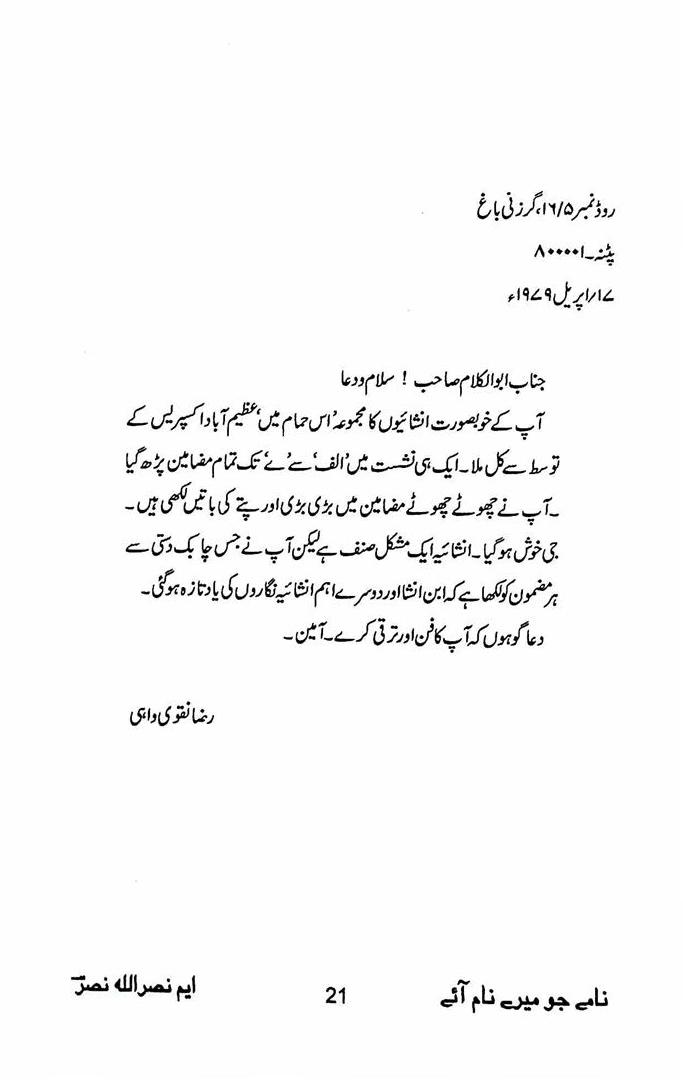 روڈ نمبر ۱۶/۵، گرزنی باغ
پٹنہ۔۸۰۰۰۰۱
۱۷؍اپریل ۱۹۷۹ء
جناب ابوالکلام صاحب ! سلام و دعا
آپ کے خوبصورت انشائیوں کا مجموعہ ’اس حمام میں‘ عظیم آباد اکسپریس کے
توسط سے کل ملا۔ ایک ہی نشست میں ’الف‘ سے ’ے‘ تک تمام مضامین پڑھ گیا
۔آپ نے چھوٹے چھوٹے مضامین میں بڑی بڑی اور پتے کی باتیں لکھی ہیں۔
جی خوش ہوگیا۔ انشائیہ ایک مشکل صنف ہے لیکن آپ نے جس چابک دستی سے
ہر مضمون کو لکھا ہے کہ ابن انشا اور دوسرے اہم انشائیہ نگاروں کی یاد تازہ ہوگئی۔
دعا گو ہوں کہ آپ کا فن اور ترقی کرے۔ آمین۔
رضا نقوی واہی
نامے جو میرے نام آئے 21 ایم نصر اللہ نصرؔ